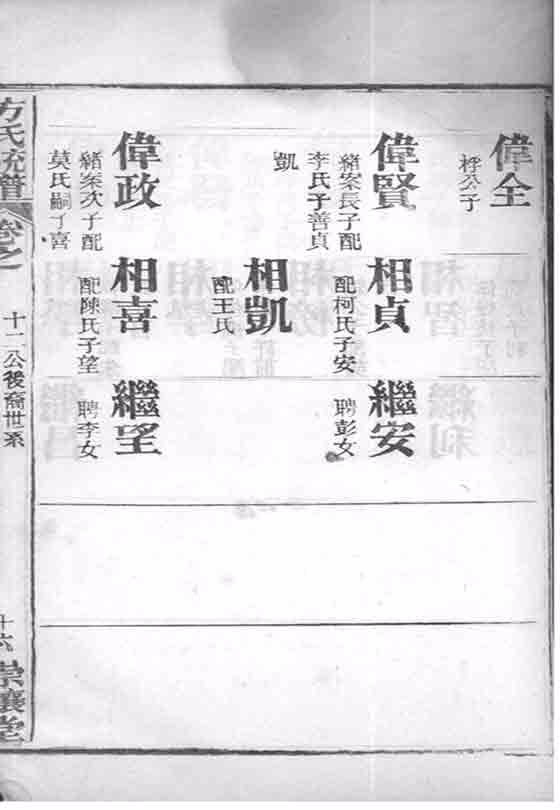 偉全
桴公子
偉賢
緒案長子配
李氏子善貞
凱
偉政
緒案次子配
莫氏嗣丁喜
相貞
配柯氏子安
相凱
配王氏
相喜
配陳氏子望
繼安
聘彭女
繼望
聘李女
方氏統譜
卷之
十二公後裔世系
十六
崇讓堂